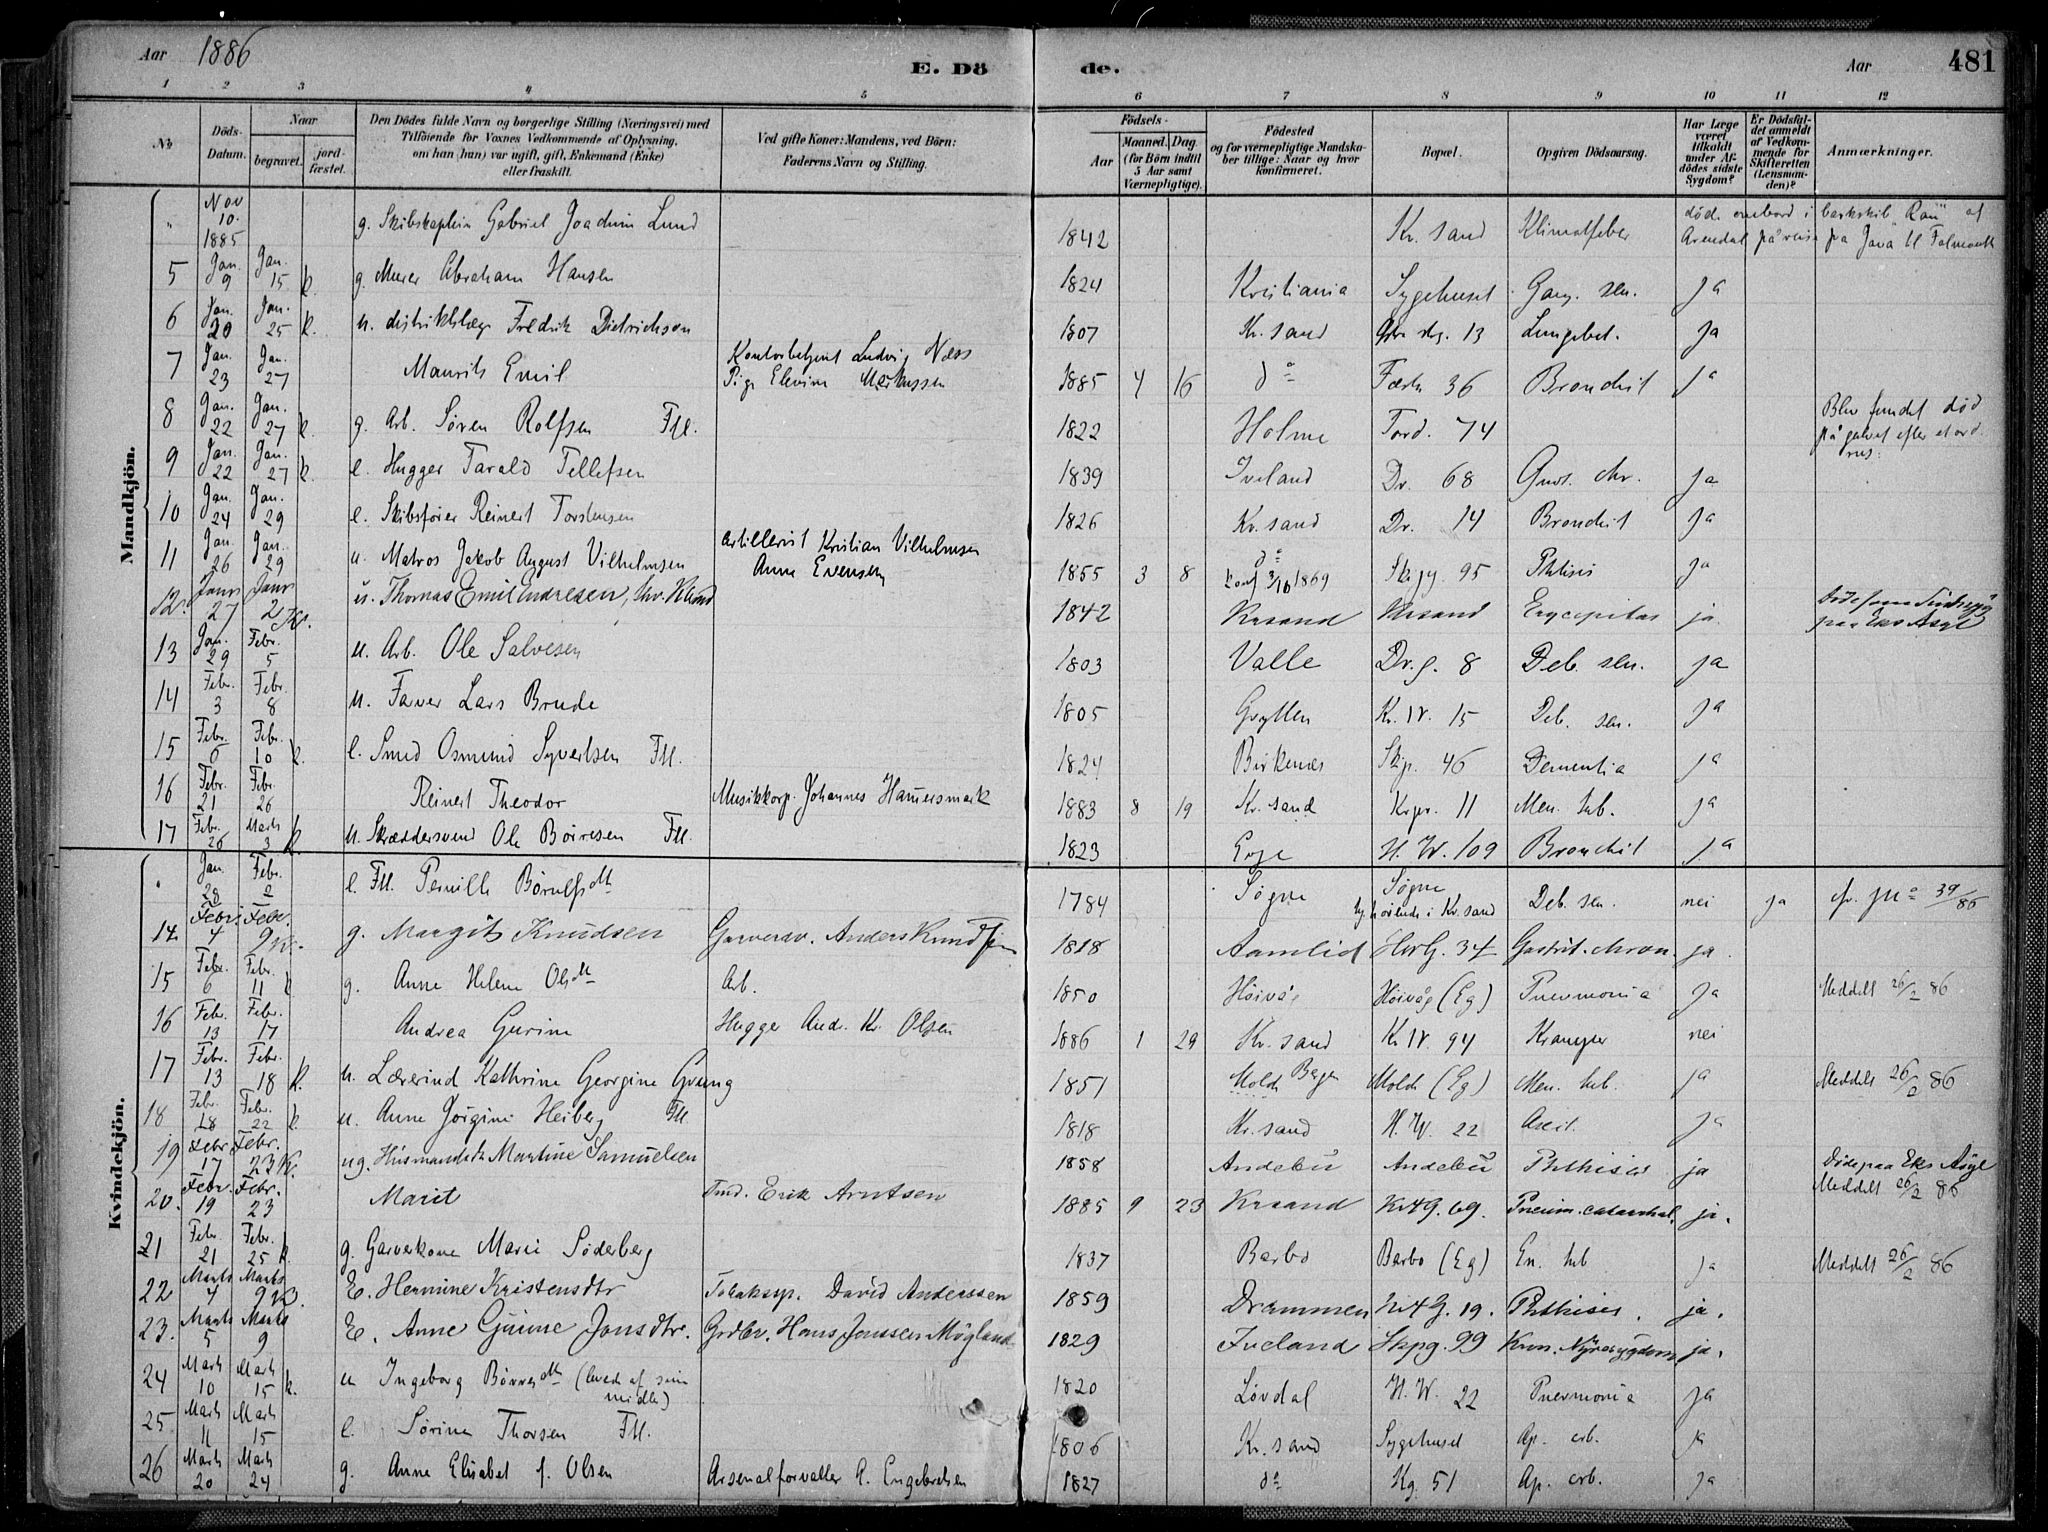 Aar 1886 E. Dö de. Aar 481
1 2 3 4 5 6 7 8 9 10 11 12
No Döds-Datum. Naar begravet. jord-fæstet. Den Dödes fulde Navn og borgerlige Stilling (Næringsvei) med Tilföiende for Voxnes Vedkommende af Oplysning, om han (hun) var ugift, gift, Enkemand (Enke) eller fraskilt. Ved gifte Koner: Mandens, ved Börn: Faderens Navn og Stilling. Födsels- Aar Maaned. Dag. (for Börn indtil 5 Aar samt Værnepligtige). Födested og for værnepligtige Mandskaber tillige: Naar og hvor konfirmeret. Bopæl. Opgiven Dödsaarsag. Har Læge været tilkaldt under Afdödes sidste Sygdom? Er Dödsfaldet anmeldt af Vedkommende for Skifteretten (Lensmanden)? Anmærkninger.
Mandkjön.
" Nov 10. 1885 g. Skibskaptein Gabriel Joachim Lund 1842 Kr. sand Klimatfeber døde ombord i barkskib "Ran" af Arendal på reise fra Java til Falmouth
5 Jan. 9 Jan. 15 k. g. Murer Abraham Hansen 1824 Kristiania Sygehuset Gang. sen. ja
6 Jan. 20 Jan. 25 k. u. distriktslæge Fredrik Dietrichson 1807 Kr. sand 13 Lungebet. ja
7 Jan. 23 Jan. 27 Maurits Emil Kontorbetjent Ludvig Næss Pige Elevine Markussen 1885 4 16 do Fæstn 36 Bronchit ja
8 Jan. 22 Jan. 27 k. g. Arb. Søren Rolfsen Fl. 1822 Holme Tord. 74 Blev fundet død på gulvet efter et ord. rus.
9 Jan. 22 Jan. 27 k. e. Hugger Tarald Tellefsen 1839 Iveland Dr. 68 chr. ja
10 Jan. 24 Jan. 29 e. Skibsfører Reinert Torstensen 1826 Kr. sand Dr. 14 Bronchit ja
11 Jan. 26 Jan. 29 u. Matros Jakob August Vilhelmsen Artillerist Kristian Vilhelmsen Anne Evensen 1855 3 8 do konf 3/10 1869 Skipg. 95 Phtisis ja
12. Janr 27 Janr 2 u. Thomas Emil Endresen, 1842 Krsand Krsand ja Døde som Sindssyg paa Eks Asyl
13 Jan. 29 Febr. 5 u. Arb. Ole Salvesen 1803 Valle Dr. g. 8 Deb. sen. ja
14 Febr. 3 Febr. 8 u. Farver Lars Brude 1805 Grytten Kr. IV. 15 Deb. sen. ja
15 Febr. 6 Febr. 10 k. e. Smed Osmund Syvertsen Fl. 1824 Birkenes Skip. 46 Dementia ja
16 Febr. 21 Febr. 26 Reinert Theodor Musikkorp. Johannes Hamersmark 1883 8 19 Kr. sand Krpr. 11 Men. tub. ja
17 Febr. 26 Marts 3 k. u. Skræddersvend Ole Børresen Fl. 1823 Evje H. W. 109 Bronchit ja
Kvindekjön.
" Jan. 28 Febr. 2 e. Fl. Pernille Børulfsdtr 1784 Søgne Søgne hjhørende i Kr. sand Deb. sen. nei ja cfr. No 39/86
14 Febr. 4 Febr. 9 g. Margit Knudsen Garversv. Anders Knudsen 1818 Aamlid HvG. 34 Gastrit. chron. ja.
15 Febr. 6 Febr. 11 k. g. Anne Helene Olsdtr Arb. 1850 Høivåg Høivåg (Eg) Pnevmonia ja Meddelt 26/2 86
16 Febr. 13 Febr. 17 Andrea Gurine Hugger And. Kr. Olsen 1886 1 29 Kr. sand Kr IV. 94 Kramper nei
17 Febr. 13 Febr. 18 k. u. Lærerind Kathrine Georgine Grung 1851 Molde Molde (Eg) Men. tub. ja Meddelt 26/2 86
18. Febr. 18 Febr. 22 k. u. Anne Jørgine Heiberg Fl. 1818 Kr. sand H. W. 22 Ascit. ja
19 Febr 17 Febr. 23 K. ug. Husmandsdtr Martine Samuelsen 1858 Andebu Andebu Phthisis ja Døde paa Eks Asyl Meddelt 26/2 86
20. Febr. 19 Febr. 23 Marit Tmd. Erik Arntsen 1885 9 23 Krsand Kr4G. 69. Pneum. catarrhal. ja.
21 Febr. 21 Febr. 25 k. g. Garverkone Marie Søderberg 1837 Barbo Barbo (Eg) En. tub ja Meddelt 26/2 86
22 Marts 4 Marts 9 E. Hermine Kristensdtr Tobaksp. David Anderssen 1859 Drammen Kr4G. 19. Phthisis. ja.
23. Marts 5 Marts 9 E. Anne Gurine Jonsdtr. Grdbr. Hans Jonssen Mögland 1829 Iveland Skpg. 99 Kron. Nyresygdom ja.
24 Marts 10 Marts 15 k. u Ingeborg Børresdtr (levede af sine midler) 1820 Løvdal H. W. 22 Pnevmonia ja
25 Marts 11 Marts 15 e. Sørine Thorsen Fl. 1806 Kr. sand Sygehuset Ap. crb. ja
26 Marts 20 Marts 24 g. Anne Elisabet f. Olsen Arsenalforvalter A. Engebretsen 1827 do Kg. 51 Ap. crb. ja